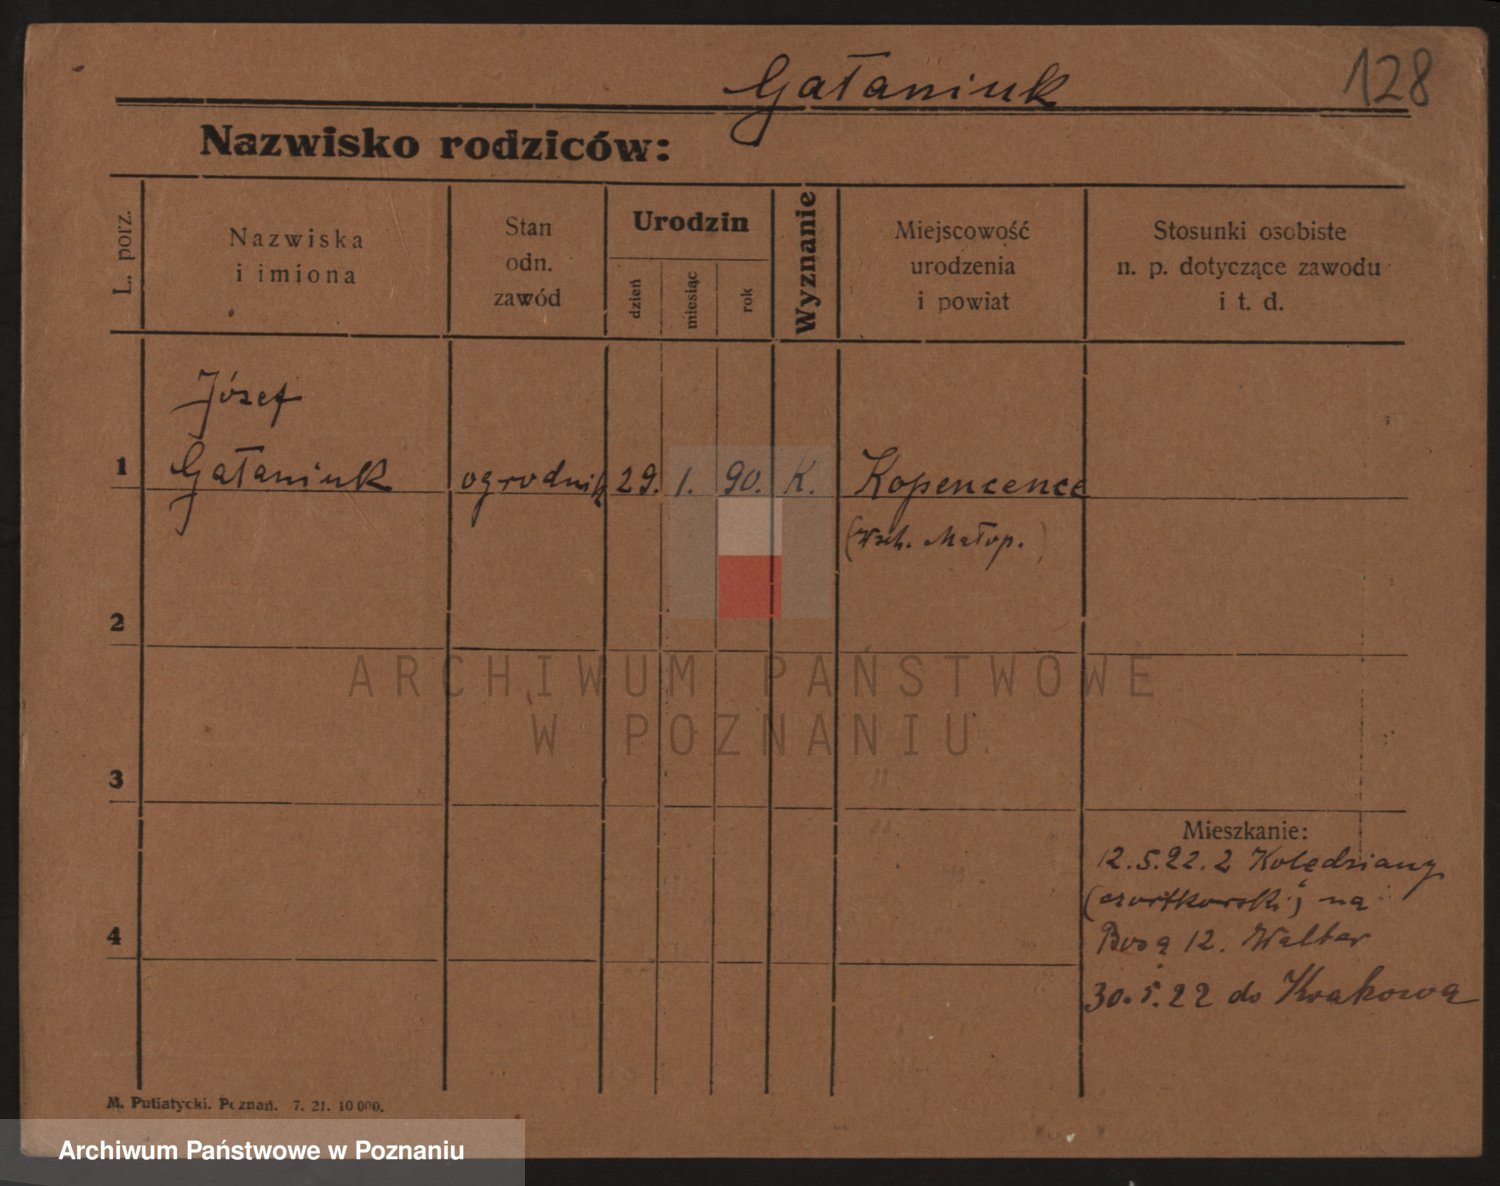 Gałaniuk
128
Nazwisko rodziców:
L. porz.
Nazwiska
i imiona
Stan
odn.
zawód
Urodzin
dzień
miesiąc
rok
Wyznanie
Miejscowość
urodzenia
i powiat
Stosunki osobiste
n. p. dotyczące zawodu
i t. d.
Józef
1 Gałaniuk ogrodnik 29. 1. 90. K. Kopencence
(Wsch. Małop.)
2
3
4
Mieszkanie:
12.5.22. z Kolędziany
(czortkowski) na
12. Walter
30.5.22 do Krakowa
M. Putiatycki. Poznań. 7. 21. 10 000.
ARCHIWUM PAŃSTWOWE
W POZNANIU
Archiwum Państwowe w Poznaniu